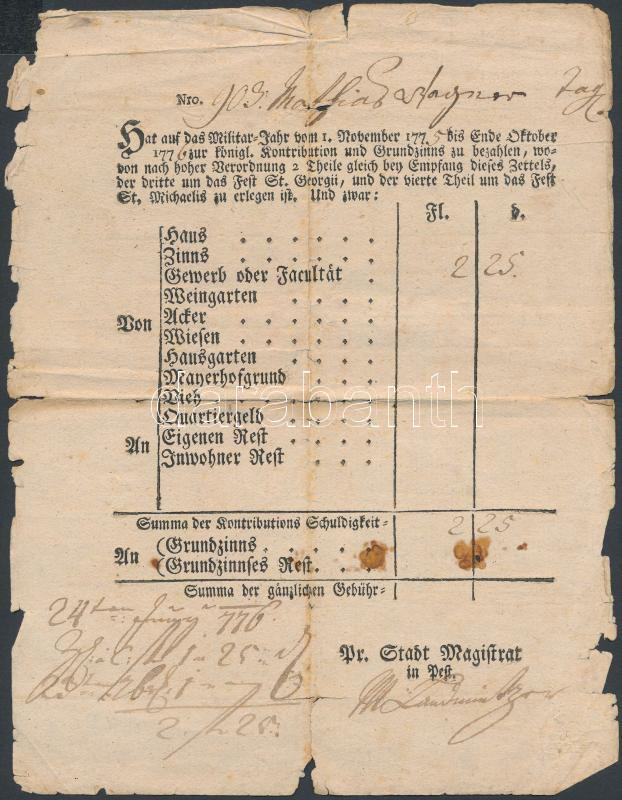 Nro. 903. Mathias Wagner
Hat auf das Militar-Jahr vom 1. November 1775 bis Ende Oktober
1776 zur königl. Kontribution und Grundzinns zu bezahlen, wo-
von nach hoher Verordnung 2 Theile gleich bey Empfang dieses Zettels,
der dritte um das Fest St. Georgii, und der vierte Theil um das Fest
St. Michaelis zu erlegen ist. Und zwar:
Fl. d.
Von
Haus
Zinns
Gewerb oder Facultät 2 25.
Weingarten
Acker
Wiesen
Hausgarten
Mayerhofgrund
Vieh
darabanth
An
Quartiergeld
Eigenen Rest
Inwohner Rest
Summa der Kontributions Schuldigkeit- 2 25
An
(Grundzinns
(Grundzinnses Rest.
Summa der gänzlichen Gebühr-
24 776.
1 25
2 25.
Pr. Stadt Magistrat
in Pest.